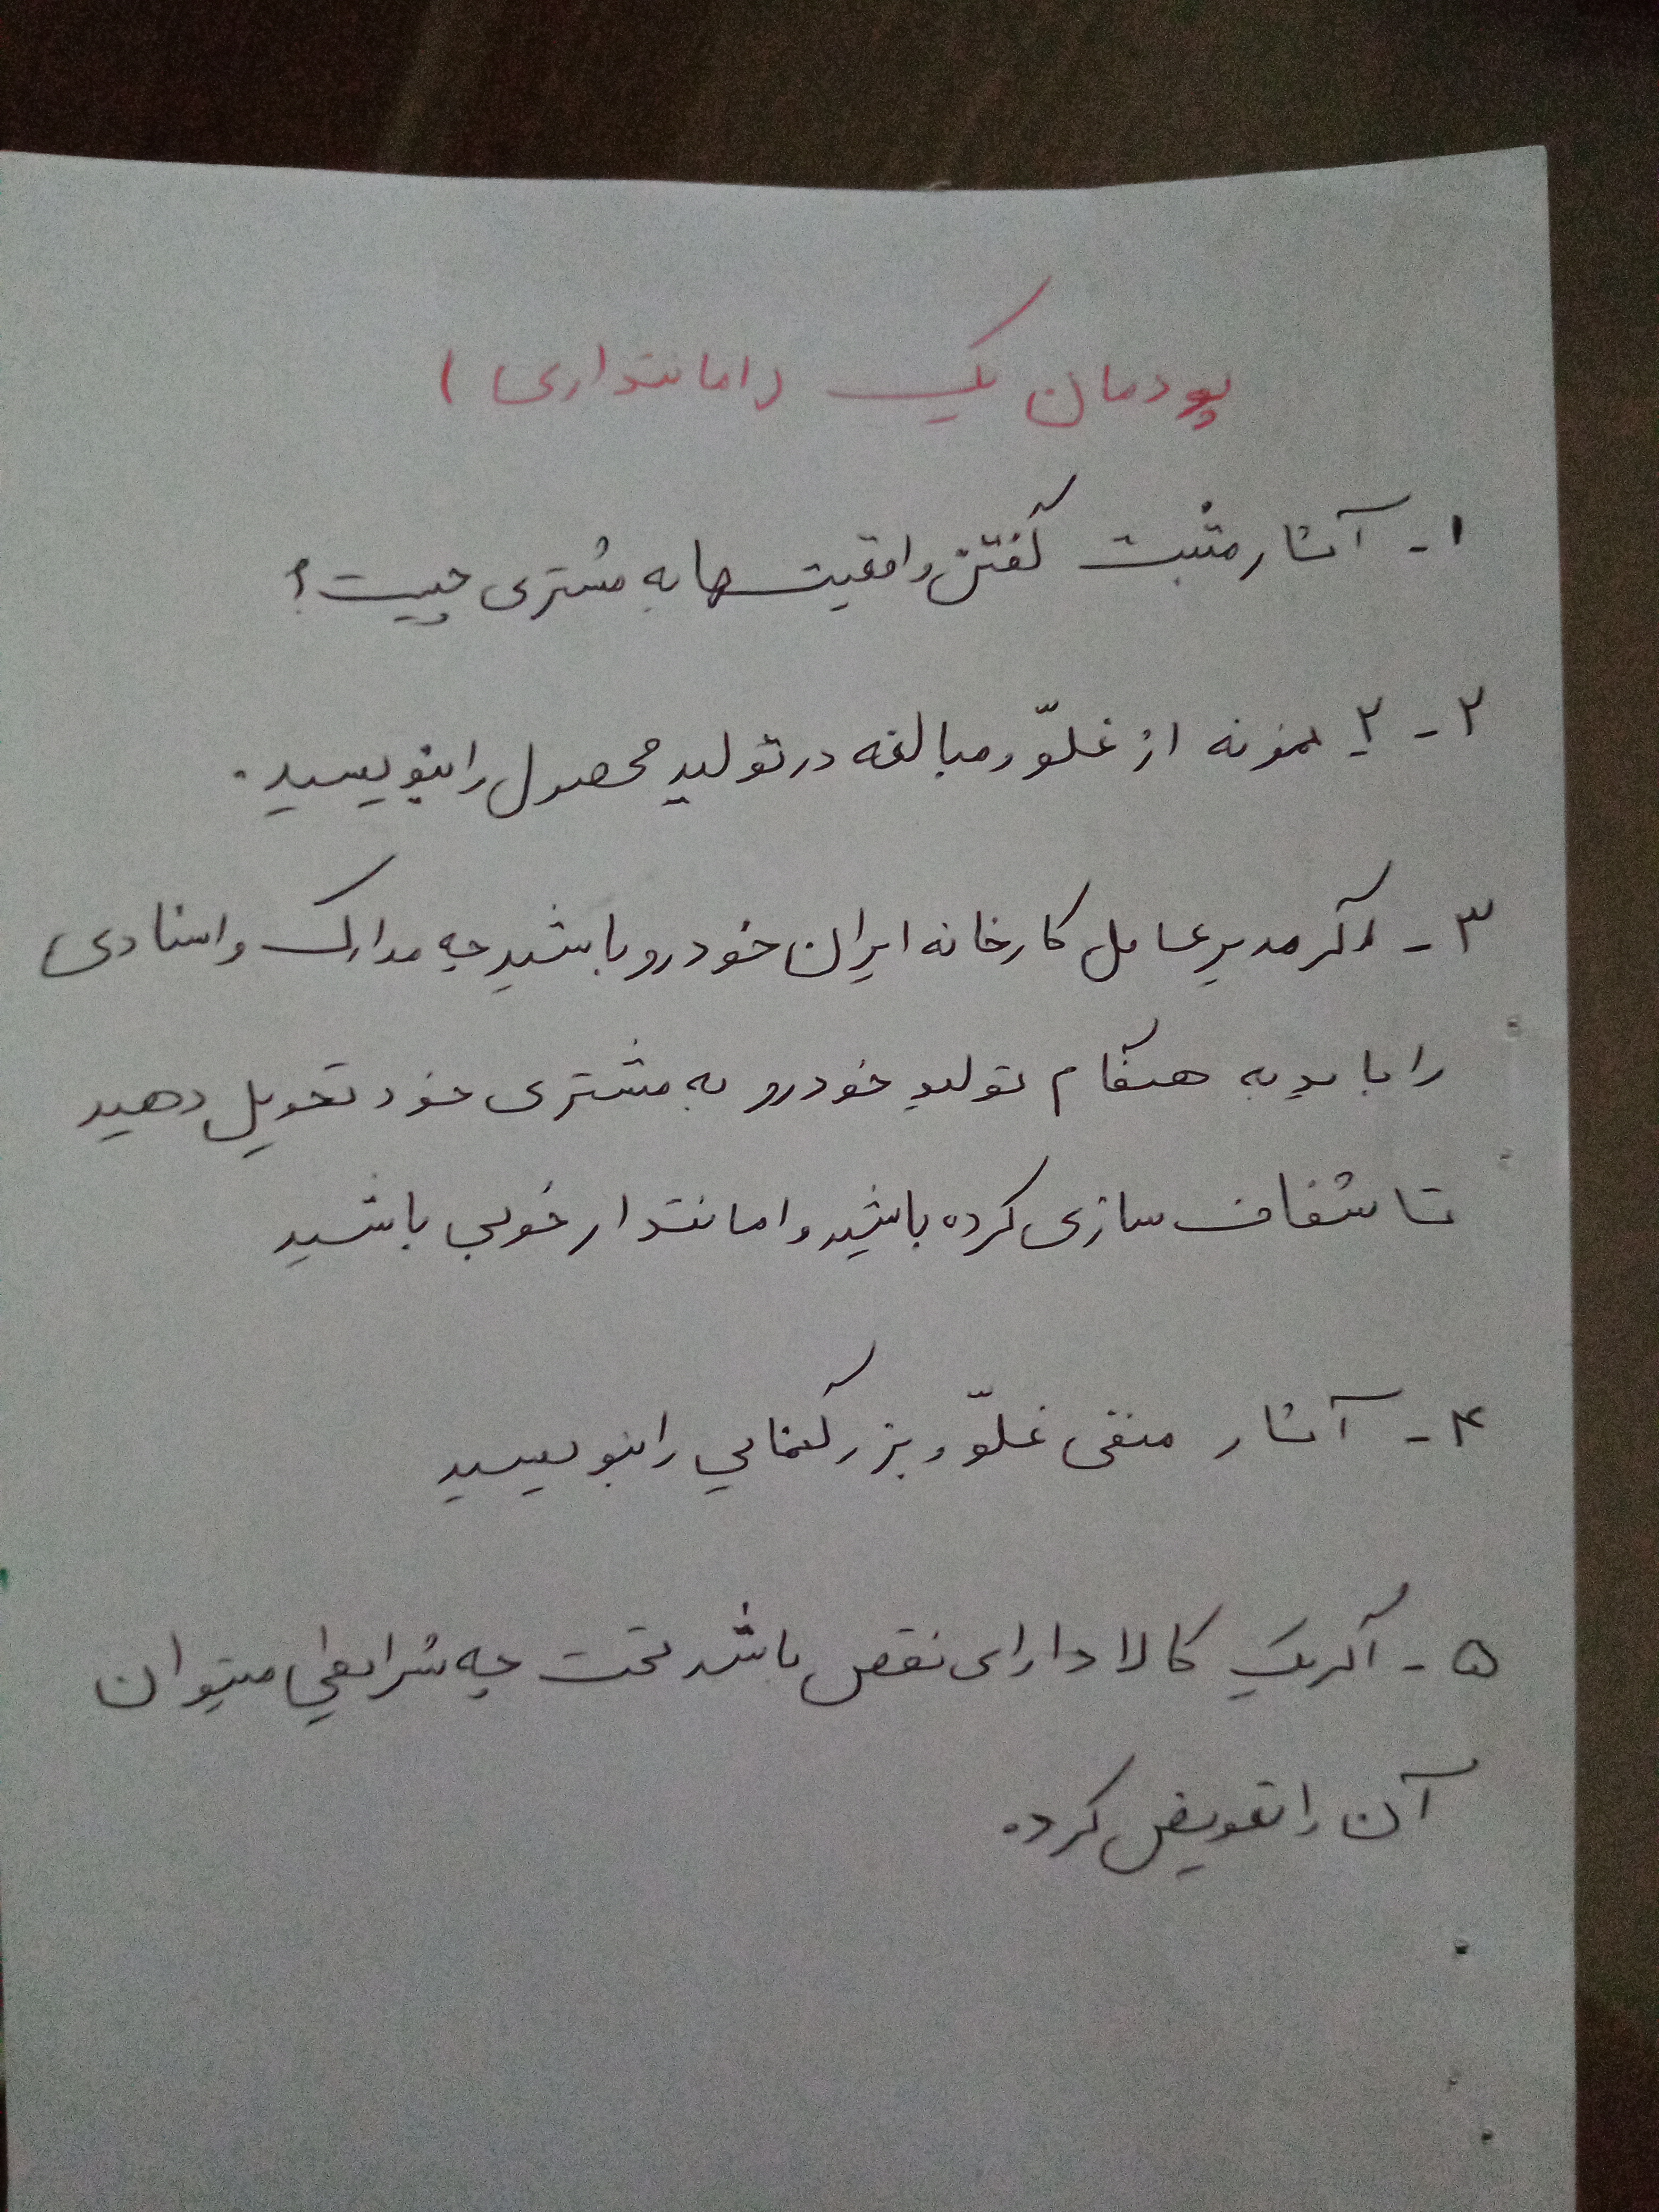 پودمان یک (امانتداری)
۱- آثار مثبت گفتن واقعیت ها به مشتری چیست؟
۲- ۲ نمونه از غلوّ و مبالغه در تولید محصول را بنویسید.
۳- اگر مدیر عامل کارخانه ایران خودرو باشید چه مدارک و اسنادی
را باید به هنگام تولید خودرو به مشتری خود تحویل دهید
تا شفاف سازی کرده باشید و امانتدار خوبی باشید
۴- آثار منفی غلوّ و بزرگنمایی را بنویسید
۵- اگر یک کالا دارای نقص باشد تحت چه شرایطی میتوان
آن را تعویض کرد.